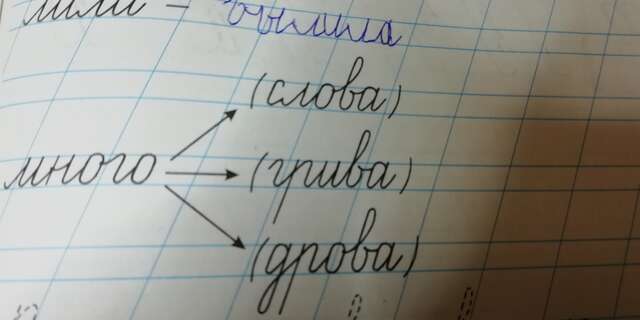 мили –
(слова)
много (грива)
(дрова)